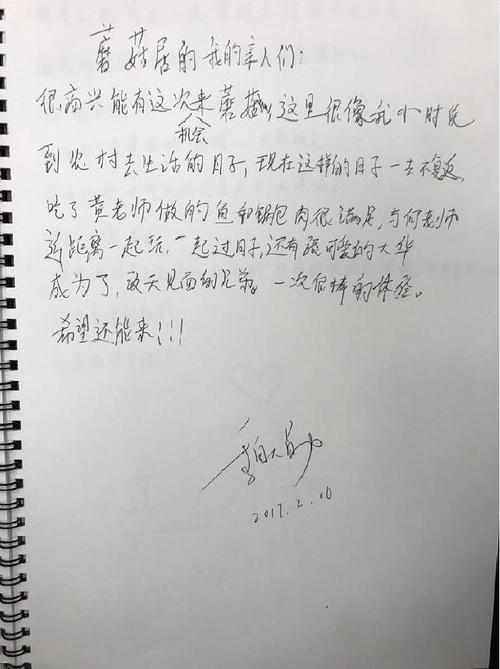 蘑菇居的我的亲人们：
很高兴能有这次来蘑菇 这里很像我小时候
机会
到农村去生活的日子，现在这样的日子一去不复返，
吃了黄老师做的鱼和锅包肉很满足，与何老师
近距离一起玩，一起过日子，还有跟可爱的大华
成为了，天见面的兄弟。一次很棒的体验。
希望还能来！！！
2017.2.10